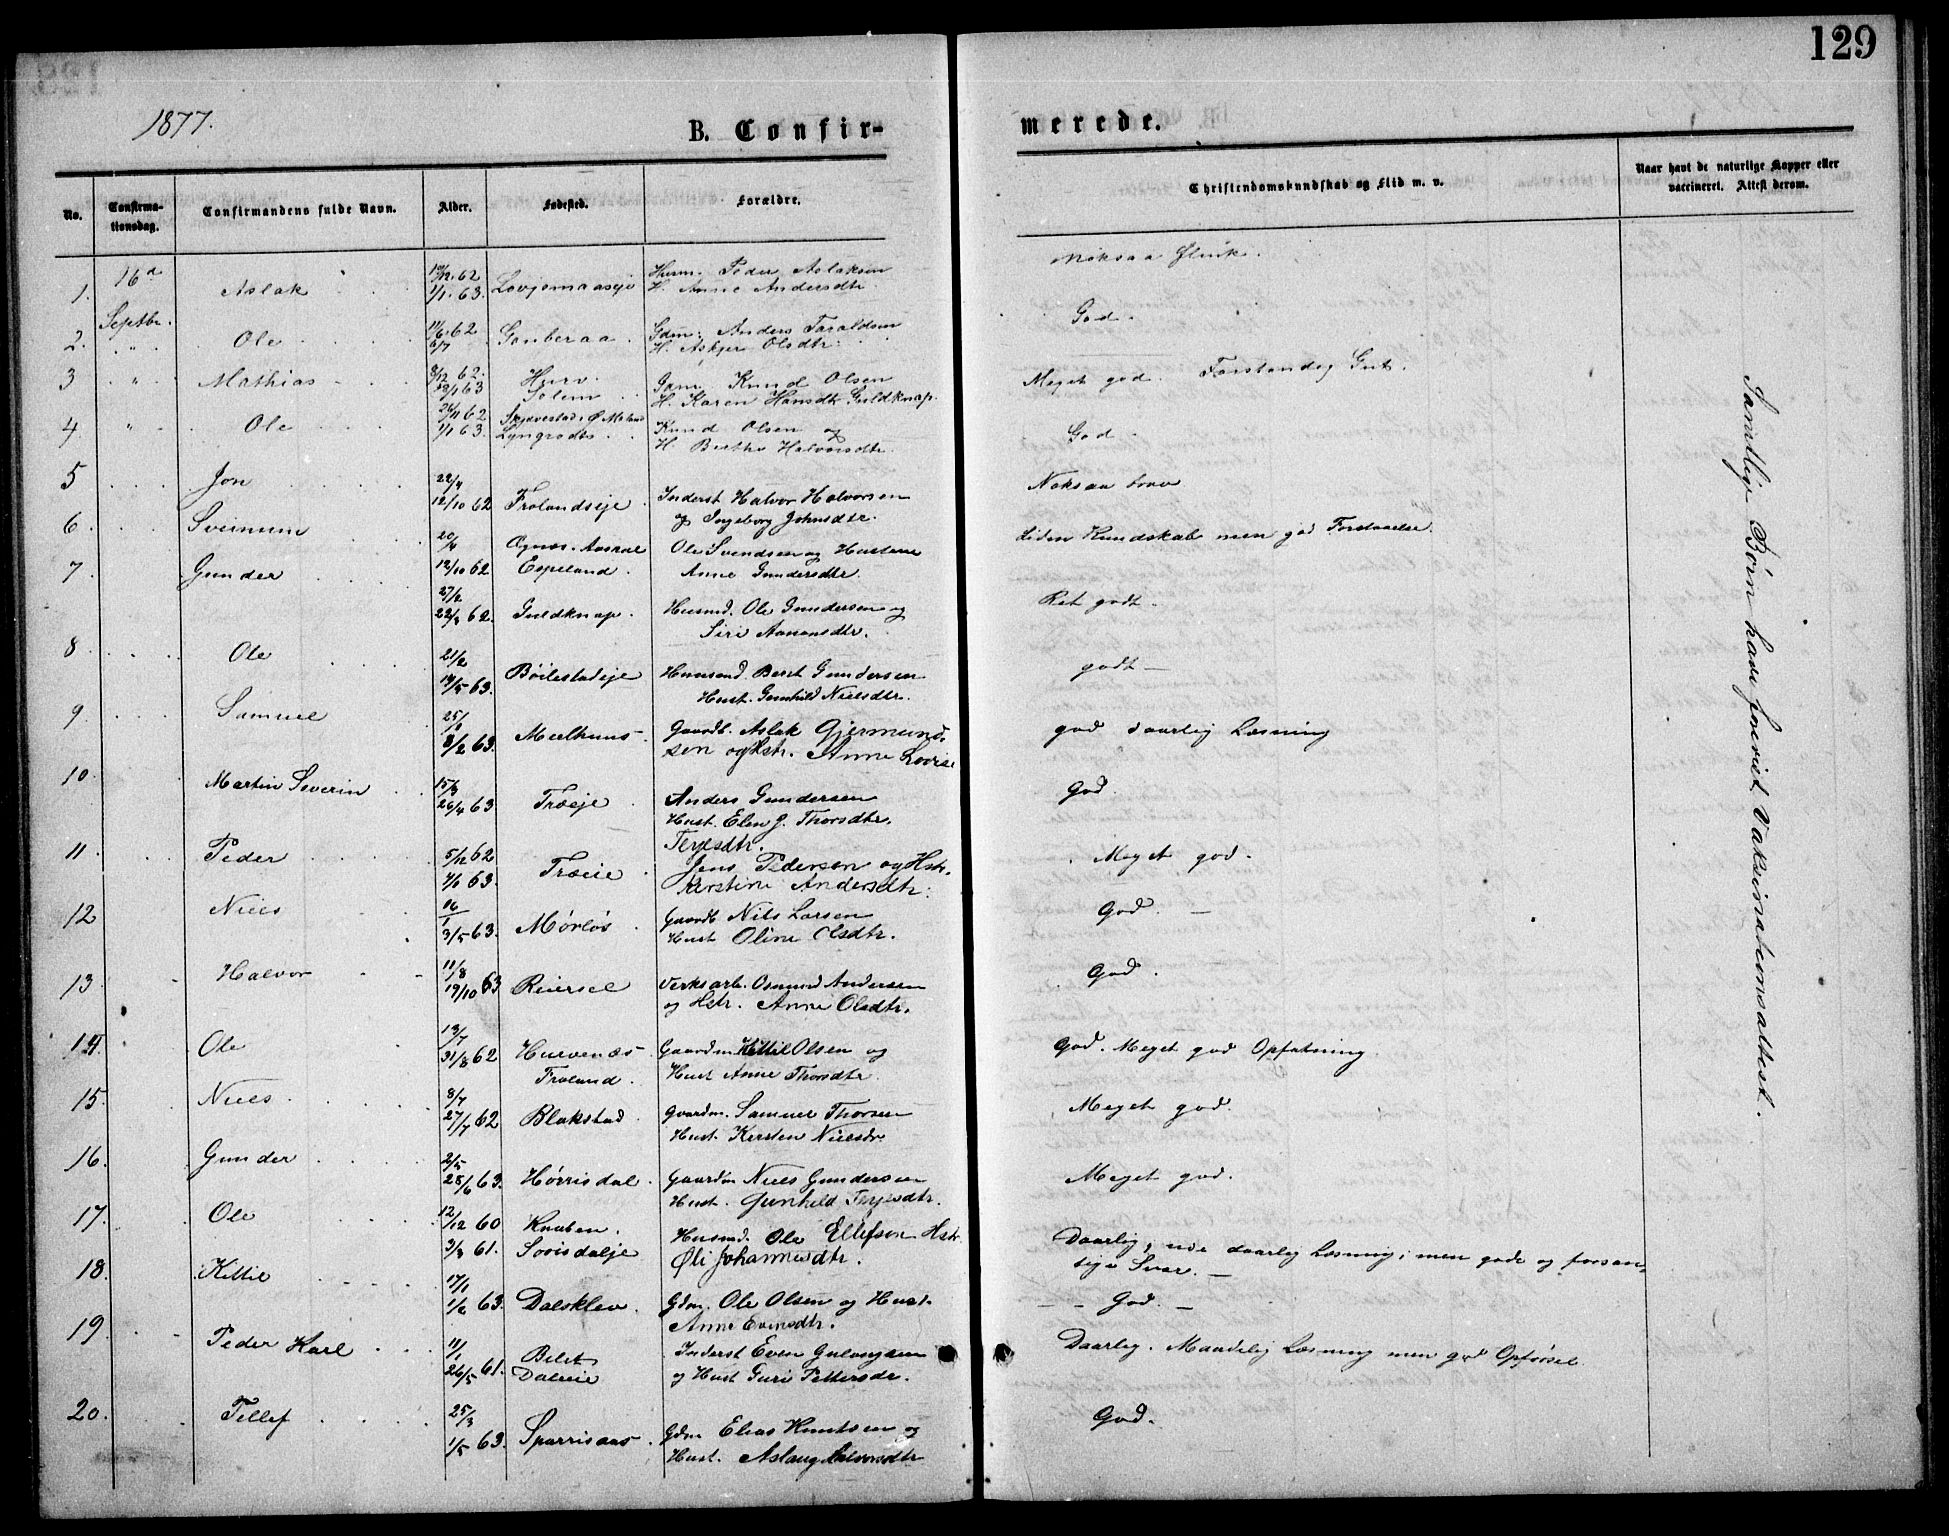 129
1877.
B. Confir-
merede.
No.
Confirma-
tionsdag.
Confirmandens fulde Navn.
Alder.
Fødested.
Forældre.
Christendomskundskab og Flid m. v.
Naar havt de naturlige Kopper eller
vaccineret. Attest derom.
1. 16d Aslak 1/1. 63. Peder Aslaksen
H. Anne Andersdtr. Noksaa flink.
Septbr.
2. " Ole 62 Anders Taraldsen
H. Askjer Olsdtr. God.
3 " Mathias 8/12 62. 63 Knud Olsen
H. Karen Hansdtr Guldknap. Meget god. Forstandig Gut.
4. " Ole 26/11 62 1/1 63. Knud Olsen og
H. Birthe Halvorsdtr. God.
5 Jon 12/10 62 Frolandseje Inderst Halvor Halvorsen
og Ingeborg Johnsdtr. Noksaa brav
6. Sveinum 20/4 Ole Svendsen og Hustru
Anne Gundersdtr. Liden Kundskab men god Forstaaelse.
7. Gunder 12/10 62 Espeland.
27/2 22/3 62. Guldknap. Husmd. Ole Gundersen og
Siri Aanonsdtr. Ret godt.
8 Ole 21/2 14/5 63. Bøilestadeje Husmd. Gundersen
Hust. Gunhild Nielsdtr. godt —
9. Samuel 25/1 8/2 63. Mælhuus. Gaardb. Aslak Gjermund-
sen og Hstr. Anne Lovise god daarlig Læsning
10. Martin Severin 15/3 26/4 63 Træje. Anders Gundersen
Hust. Elen G. Thorsdtr.
Terjesdtr. God.
11. Peder 5/12 62 63. Træeie Jens Pedersen og Hstr.
Kerstine Andersdtr. Meget god.
12 Niels 16/1 3/5 63. Mørløs Gaardb Nils Larsen
Hust Oline Olsdtr. God. —
13. Halvor 11/8 19/10 63 Reiersel Verksarb. Osmund Andersen
og Hstr. Anne Olsdtr. God.
14. Ole 13/7 31/8 62 Hurvenæs
Froland. Gaardm. Kittil Olsen og
Hust Anne Thorsdtr. God. Meget god Opfatning.
15. Niels. 8/7 27/7 62 Blakstad. Gaardm. Samuel Thorsen
Hust. Kersten Nielsdr. Meget god.
16. Gunder 2/5 28/6 63. Hørrisdal. Gaardm Niels Gundersen
Hust. Gunhild Terjesdtr. Meget god.
17. Ole 12/12 60 3/3 61. Knaben.
Sorisdalje Husmd. Ole Ellefsen Hstr.
Øli Johannesdtr. Daarlig, daarlig Læsning; men gode og forstan-
dige Svar. —
18. Kittil 17/1 1/2 63. Dalsklev. Gdm. Ole Olsen og Hust.
Anne Evensdtr. — God. —
19. Peder Karl 11/1 26/5 61. Daleeie Inderst Even
og Hust Guri Pettersdr. Daarlig. Maadelig Læsning men god Opførsel.
20. Tellef 25/3 1/5 63. Sparrisaas. Gdm Elias Knutsen og
Hust. Aslaug Halvorsdtr God.
Samtlige Børn have forevist Vaksinationsattest.